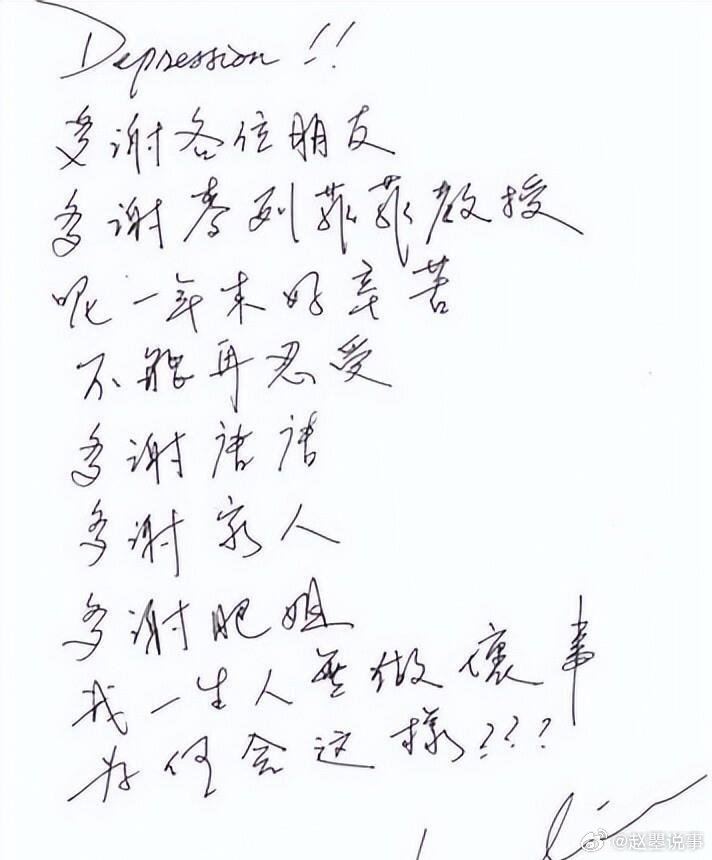 Depression !!
多謝各位朋友
多謝麥列菲菲教授
呢一年来好辛苦
不能再忍受
多謝唐唐
多謝家人
多謝肥姐
我一生人無做壞事
为何会这樣???
@赵曌说事